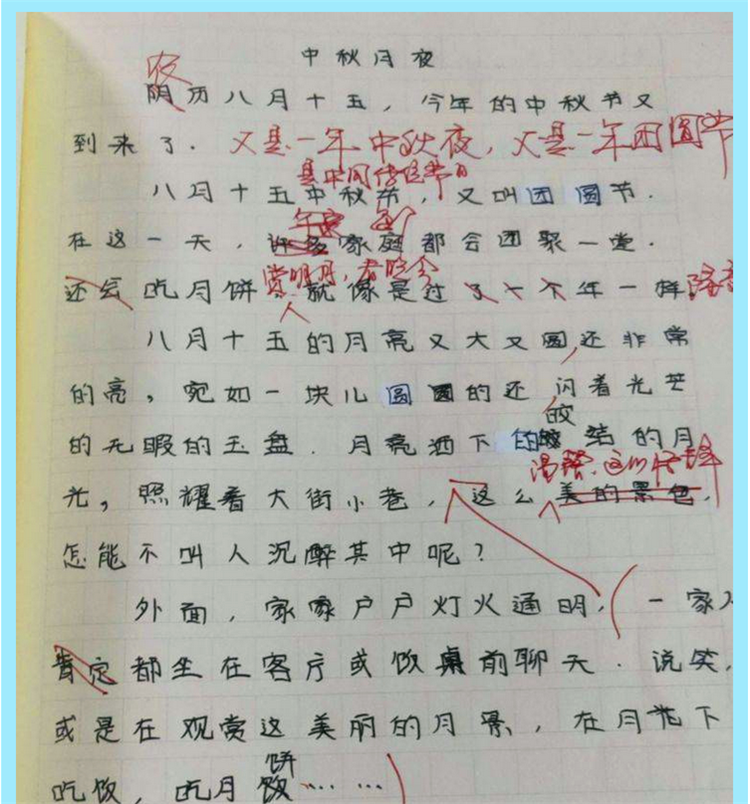 中秋月夜
农
阴历八月十五，今年的中秋节又
到来了．又是一年中秋夜，又是一年团圆节
是中国传统节日
八月十五中秋节，又叫团圆节．
每个
在这一天，许多家庭都会团聚一堂．
赏明月，看晚会
还会吃月饼．就像是过了一个年一样
人
八月十五的月亮又大又圆还非常
的亮，宛如一块儿圆圆的还闪着光芒
皎
的无暇的玉盘．月亮洒下的皎洁的月
温馨．这么
光，照耀着大街小巷，这么美的景色，
怎能不叫人沉醉其中呢？
外面，家家户户灯火通明，（一家人
肯定都坐在客厅或饭桌前聊天．说笑，
或是在观赏这美丽的月景，在月光下
饼
吃饭，吃月饭……）